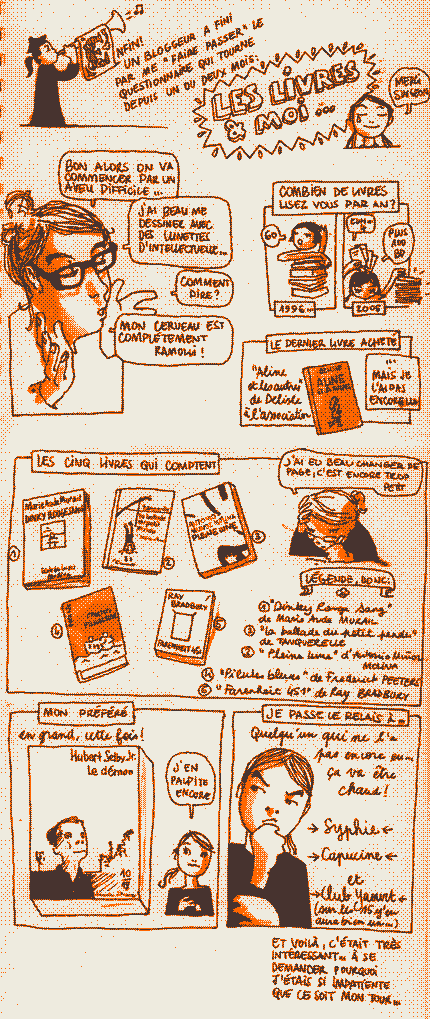 ENFIN!
UN BLOGGEUR A FINI
PAR ME "FAIRE PASSER" LE
QUESTIONNAIRE QUI TOURNE
DEPUIS UN OU DEUX MOIS.
LES LIVRES
& MOI...
MERCI
BON ALORS ON VA
COMMENCER PAR UN
AVEU DIFFICILE...
J'AI BEAU ME
DESSINER AVEC
DES LUNETTES
D'INTELLECTUELLE...
COMMENT
DIRE?
MON CERVEAU EST
COMPLÈTEMENT
RAMOLLI!
COMBIEN DE LIVRES
LISEZ VOUS PAR AN?
60
PLUS
100
BD
1996...
2006
LE DERNIER LIVRE ACHETÉ
"Aline
et les autres"
de Delisle
à l'association
ALINE
...
MAIS JE
L'AI PAS
ENCORE LU
LES CINQ LIVRES QUI COMPTENT
J'AI EU BEAU CHANGER DE
PAGE, C'EST ENCORE TROP
PETIT
Marie Aude Murail
DINKY ROUGE SANG
1
2
PLEINE LUNE
3
4
RAY
BRADBURY
FARENHEIT 451
5
LÉGENDE, DONC:
① "Dinkey Rouge Sang"
de Marie Aude MURAIL
③ "la ballade du petit pendu"
de TANQUERELLE
② "Pleine lune" d'Antonio Muñoz
Molina
④ "Pilules bleues" de Frederick PEETERS
⑤ "Farenheit 451" de Ray BRADBURY
MON PRÉFÉRÉ
en grand, cette fois!
Hubert Selby Jr.
Le démon
10
18
J'EN
PALPITE
ENCORE
JE PASSE LE RELAIS À...
Quelqu'un qui ne l'a
pas encore eu...
ça va être
chaud!
→ Syphie ←
→ Capucine ←
et
→ Club Yaourt ←
ET VOILÀ, C'ÉTAIT TRÈS
INTÉRESSANT... À SE
DEMANDER POURQUOI
J'ÉTAIS SI IMPATIENTE
QUE CE SOIT MON TOUR...